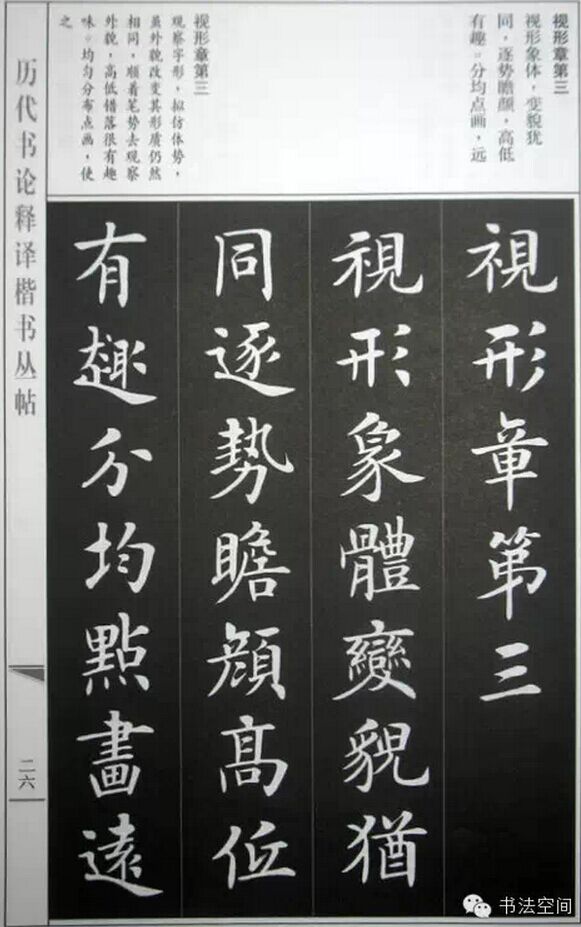 视形章第三
视形象体，变貌犹
同，逐势瞻颜，高低
有趣。分均点画，远
视形章第三
观察字形，拟仿体势，
虽外貌改变其形质仍然
相同，顺着笔势去观察
外貌，高低错落很有趣
味。均匀分布点画，使
之
視形章第三
視形象體變貌猶
同逐勢瞻顔髙低
有趣分均點畫遠
历代书论释译楷书丛帖
二六
书法空间